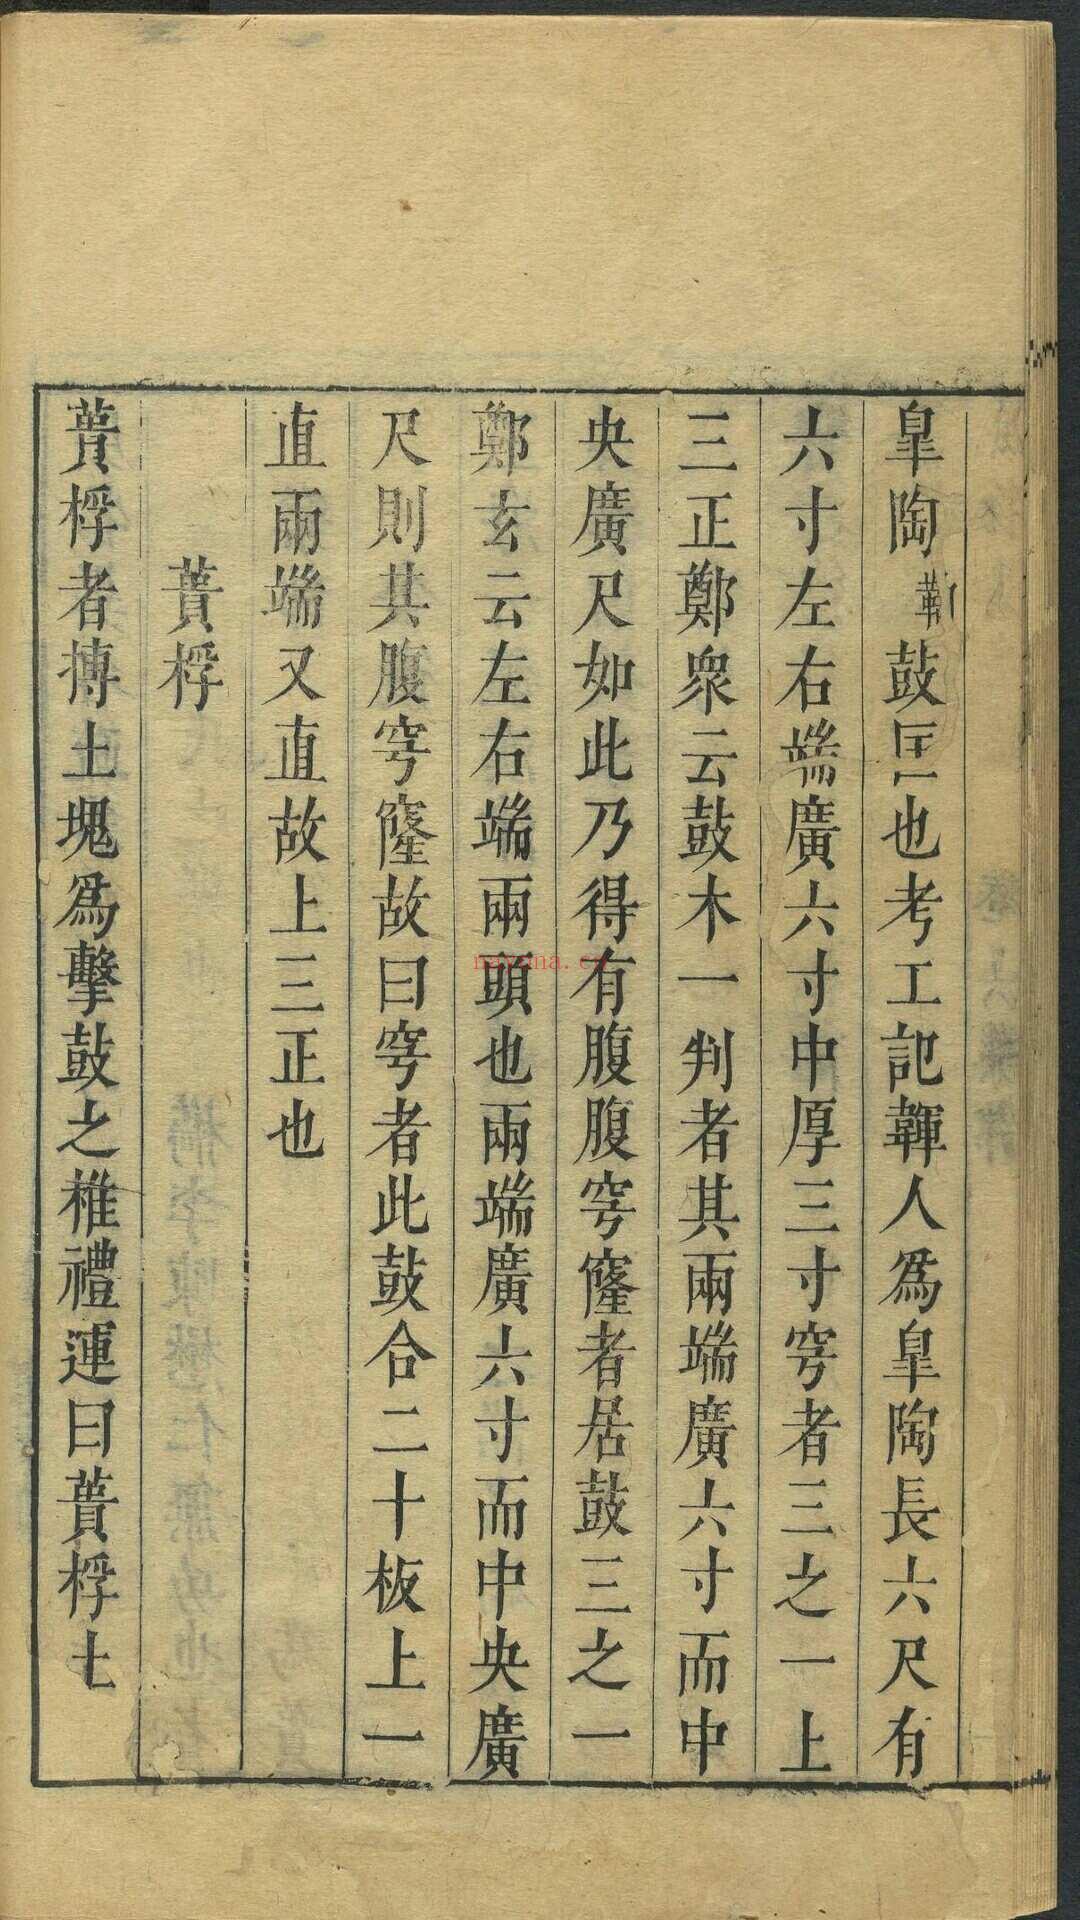 皐陶鞠鼓匡也考工記韗人爲皐陶長六尺有
六寸左右端廣六寸中厚三寸穹者三之一上
三正鄭衆云鼓木一判者其兩端廣六寸而中
央廣尺如此乃得有腹腹穹窿者居鼓三之一
鄭玄云左右端兩頭也兩端廣六寸而中央廣
尺則其腹穹窿故曰穹者此鼓合二十板上一
直兩端又直故上三正也
蕢桴
蕢桴者摶土塊爲擊鼓之椎禮運曰蕢桴土
nayona.cn